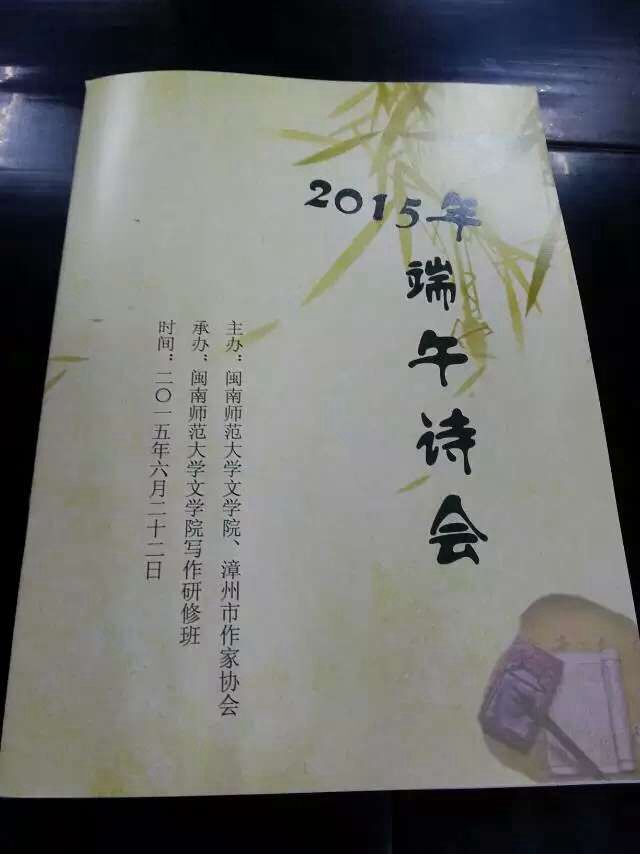 2015年
端午诗会
主办：闽南师范大学文学院、漳州市作家协会
承办：闽南师范大学文学院写作研修班
时间：二〇一五年六月二十二日